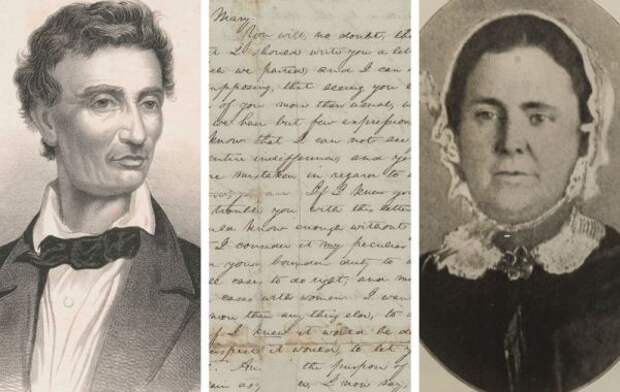 Mary
You will, no doubt, th
t I should write you a let
ch we parted; and I can o
upposing, that seeing you l
of you more than usual, w
we had but few expression
know that I can not see
entire indifference; and ye
re mistaken in regard to w
you are. If I knew you
trouble you with this letter
uld know enough without
t I consider it my peculiar
your bounden duty to a
ll cases to do right, and mo
cases with women. I wan
more than any thing else, to d
if I knew it would be do
uspect it would, to let y
the purpose of
I now say,